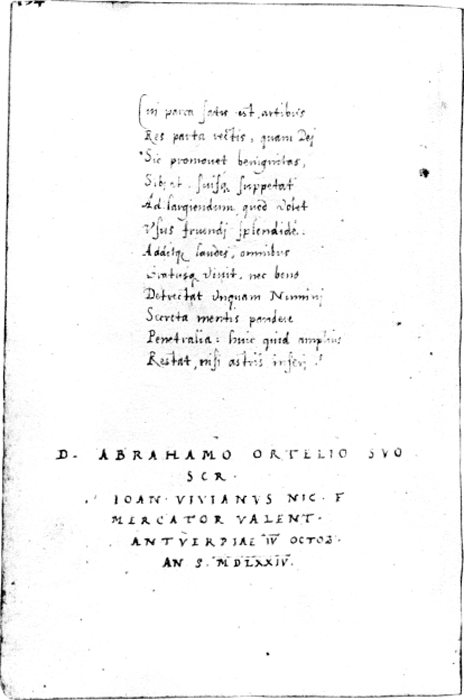 Cui parca satis est, artibus
Res parta rectis, quam Dej
Sic promouet benignitas,
Sibj et suisq suppetat
Ad largiendum quod volet
Vsus fruendj splendidè.
Additq laudes, omnibus
Gratusq viuit, nec bono
Detrectat vnquam Numinj
Secreta mentis pandere
Penetralia: huic quid amplius
Restat, nisi astris inserj?
D. ABRAHAMO ORTELIO SVO
SCR.
IOAN. VIVIANVS NIC. F
MERCATOR VALENT.
ANTVERPIAE IV OCTOB.
AN S. MDLXXIV.